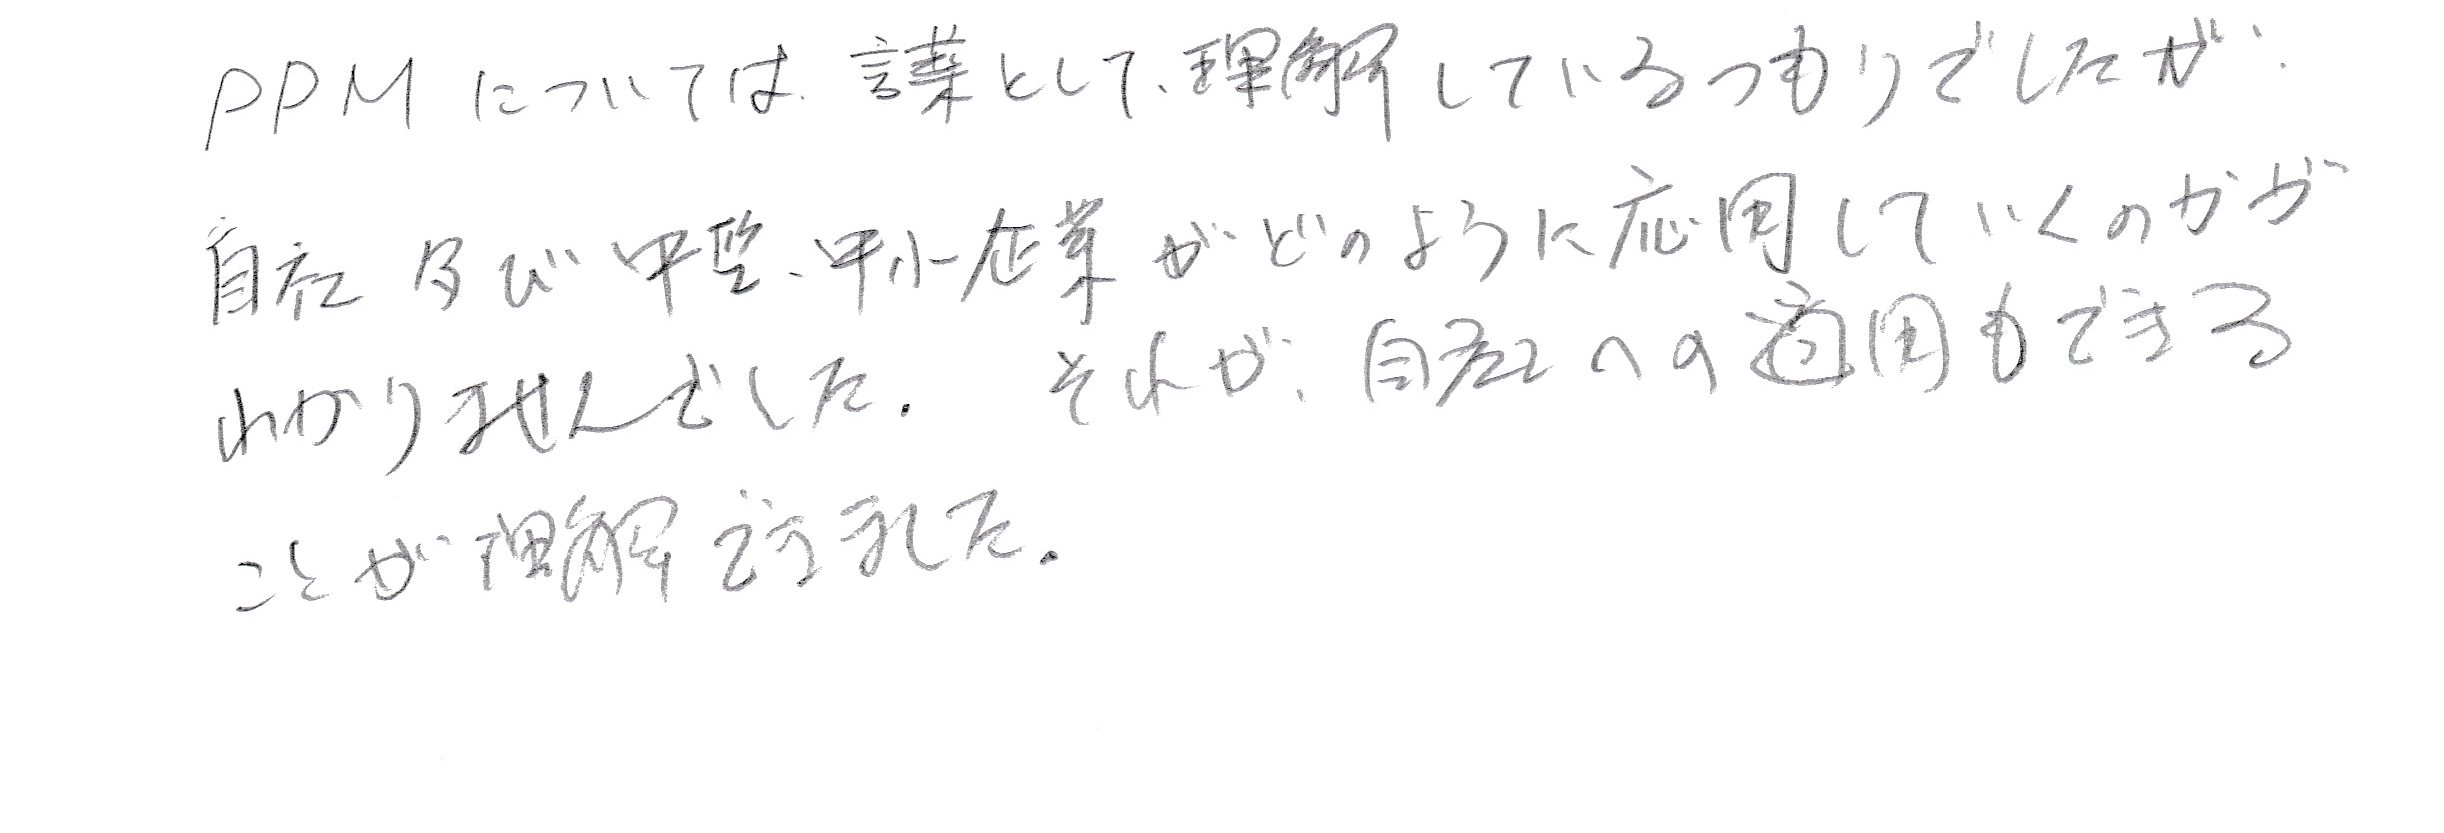 PPMについては、言葉として、理解しているつもりでしたが、
自社及び中堅、中小企業がどのように応用していくのかが
わかりませんでした。それが、自社への適用もできる
ことが理解できました。